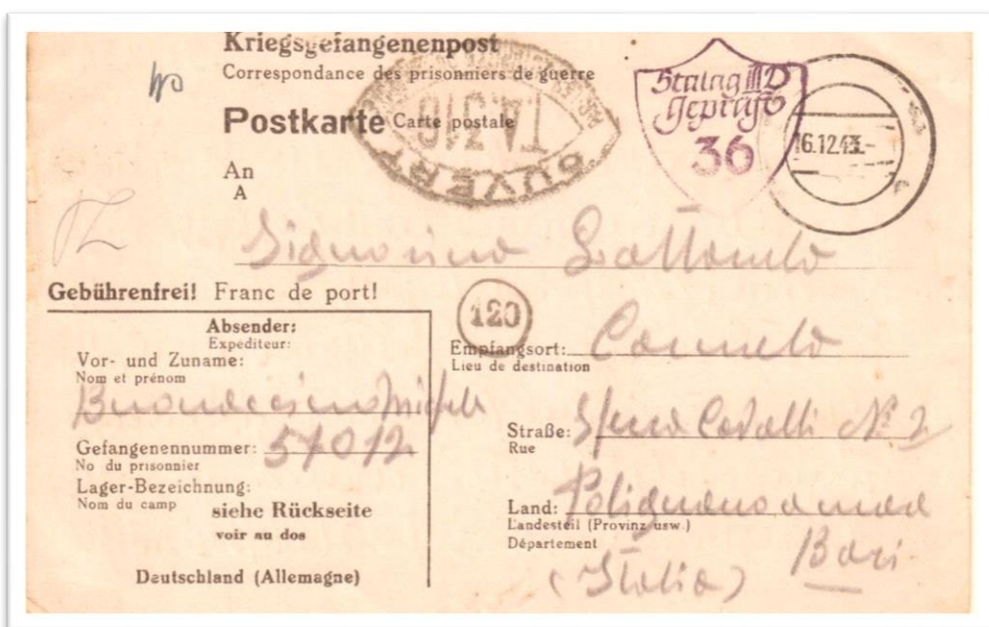 Kriegsgefangenenpost
Correspondance des prisonniers de guerre
Postkarte Carte postale
OUVERT
Stalag III D
Geprüft
36
16.12.43.-
An
A
Gebührenfrei! Franc de port!
120
Absender:
Expediteur:
Vor- und Zuname:
Nom et prénom
Gefangenennummer: 57012
No du prisonnier
Lager-Bezeichnung:
Nom du camp
siehe Rückseite
voir au dos
Deutschland (Allemagne)
Empfangsort:
Lieu de destination
Straße: N° 2
Rue
Land: Polignano a mare
Landesteil (Provinz usw.)
Département
Bari
(Italia)